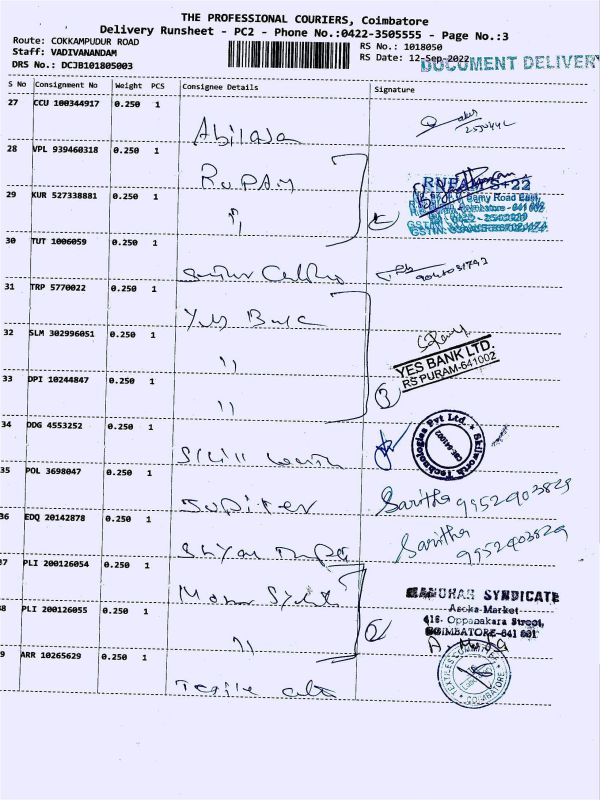 THE PROFESSIONAL COURIERS, Coimbatore
Delivery Runsheet - PC2 - Phone No.:0422-3505555 - Page No.:3
Route: COKKAMPUDUR ROAD
RS No.: 1018050
Staff: VADIVANANDAM
RS Date: 12-Sep-2022
DOCUMENT DELIVERY
DRS No.: DCJB101805003
S No Consignment No Weight PCS Consignee Details Signature
27 CCU 100344917 0.250 1
Abilasa
28 VPL 939460318 0.250 1
RUPAM
29 KUR 527338881 0.250 1
11
30 TUT 1006059 0.250 1
9041031792
31 TRP 5770022 0.250 1
Yes Bank
32 SLM 302996051 0.250 1
11
YES BANK LTD.
RS PURAM-641002
33 DPI 10244847 0.250 1
11
34 DDG 4553252 0.250 1
Skill
Skilworth Technologies Pvt Ltd.
CBE-641002
35 POL 3698047 0.250 1
Jupiter
Saritha 9952903829
36 EDQ 20142878 0.250 1
Shyam
Saritha
9952903829
37 PLI 200126054 0.250 1
MANOHAR SYNDICATE
Asoka Market
416- Oppanakara Street,
COIMBATORE-641 001
38 PLI 200126055 0.250 1
11
39 ARR 10265629 0.250 1
COIMBATORE